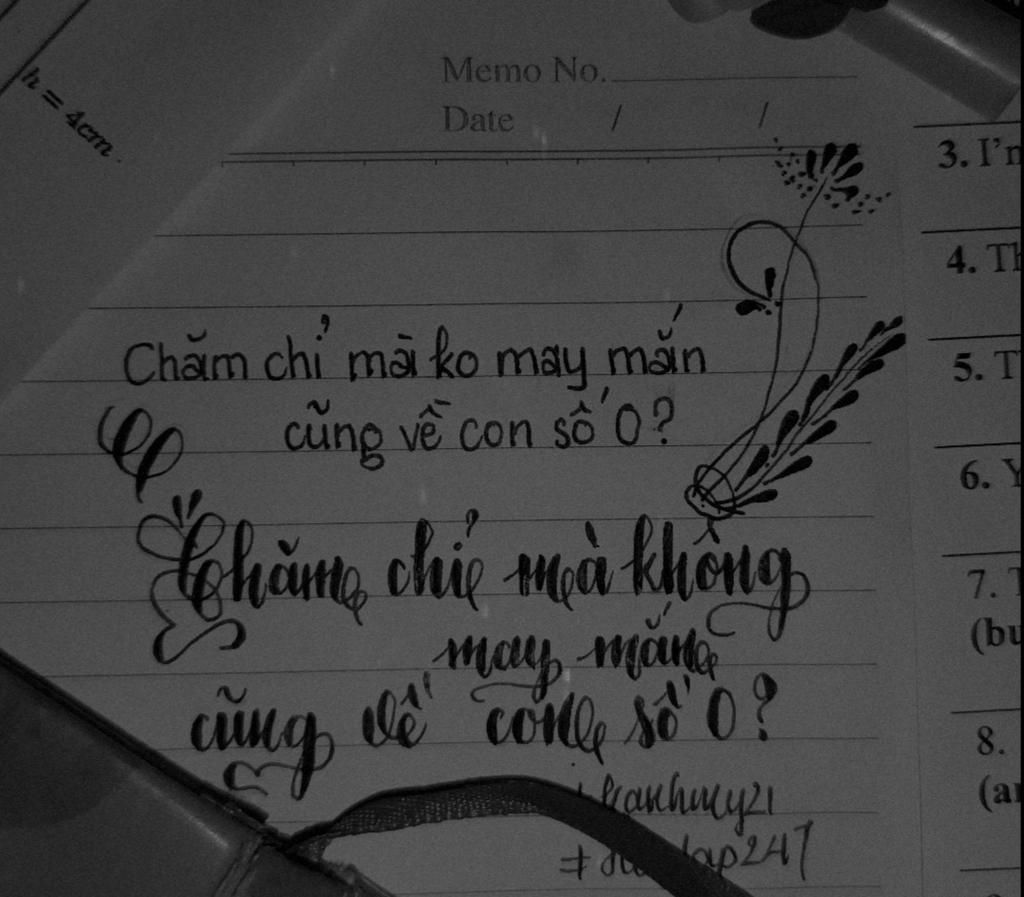 h = 4cm.
Memo No.
Date / /
Chăm chỉ mà ko may mắn
cũng về con số 0?
Chăm chỉ mà không
may mắn
cũng về con số 0?
3. I'm
4. Th
5. T
6. Y
7. T
(bu
8.
(an